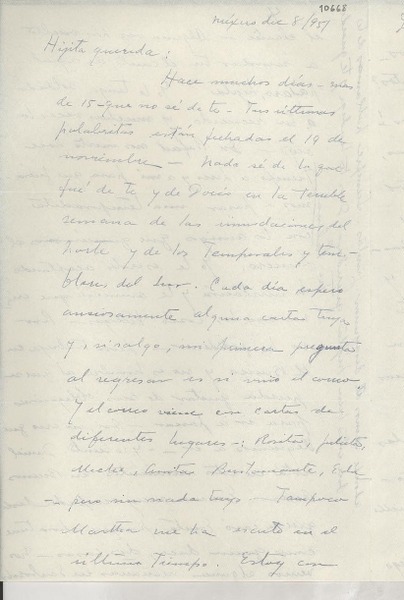 10668
México dic 8/951
Hijita querida:
Hace muchos días - más
de 15 - que no sé de ti - Tus últimas
palabritas están fechadas el 19 de
noviembre - Nada sé de lo que
fué de ti y de Doris en la terrible
semana de las inundaciones del
norte y de los temporales y tem-
blores del sur. Cada día espero
ansiosamente alguna carta tuya
y, si salgo, mi primera pregunta
al regresar es si vino el correo.
Y el correo viene con cartas de
diferentes lugares -: Rositas, Julieta,
Bustamante,
- pero sin nada tuyo - Tampoco
Martha me ha escrito en el
último tiempo. Estoy con